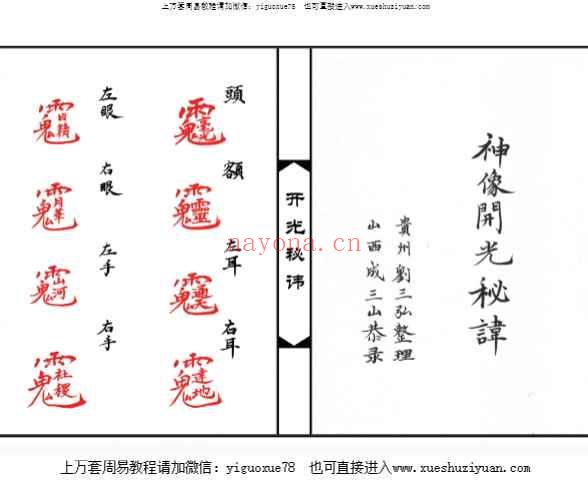 上万套周易教程请加微信：yiguoxue78 也可直接进入www.xueshuziyuan.com
神像開光秘諱
貴州劉三弘整理
山西成三山恭录
开光秘讳
頭
額
靈
左耳
通天
右耳
達地
左眼
右眼
月華
左手
山河
右手
社稷
nayona.cn
上万套周易教程请加微信：yiguoxue78 也可直接进入www.xueshuziyuan.com